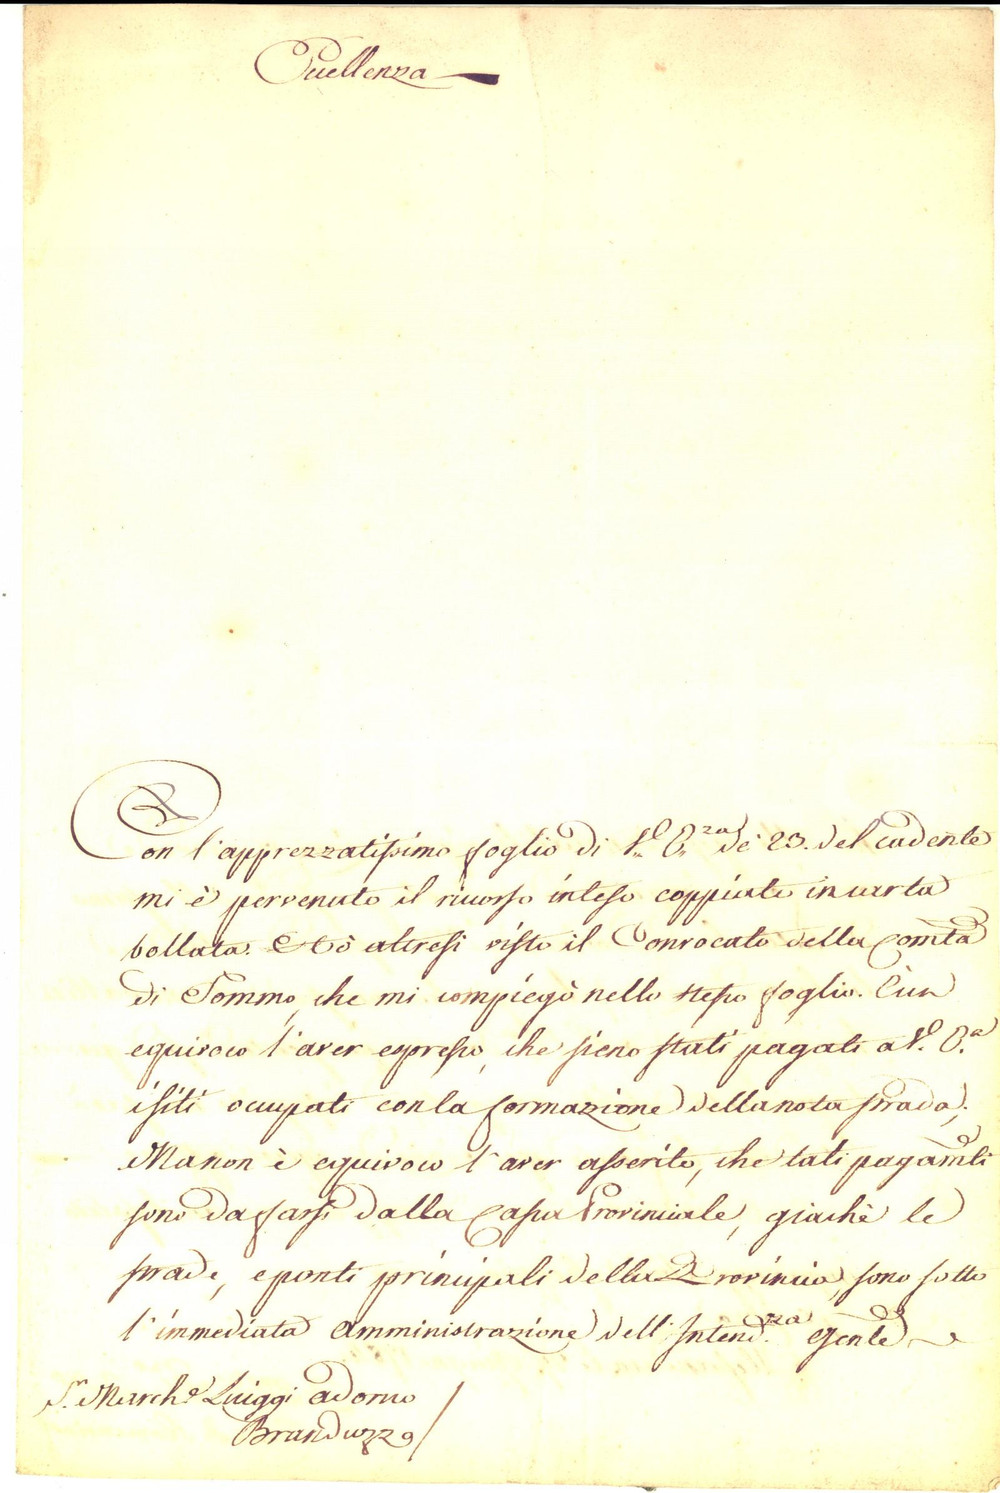 Eccellenza
Con l'apprezzatissimo foglio di V. E.za de' 23. del cadente
mi è pervenuto il ricorso inteso coppiato in carta
bollata. Hò altresi visto il Convocato della Comtà
di Sommo, che mi compiegò nello stesso foglio. È un
equivoco l'aver espresso, che sieno stati pagati a V. E.a
i siti occupati con la formazione della nota strada;
Ma non è equivoco l'aver asserito, che tali pagamti
sono da farsi dalla Cassa Provinciale, giachè le
strade, e ponti principali della Provincia, sono sotto
l'immediata amministrazione dell'Intend.za Gen.le e
S.r March.e Luiggi adorno
Branduzzo